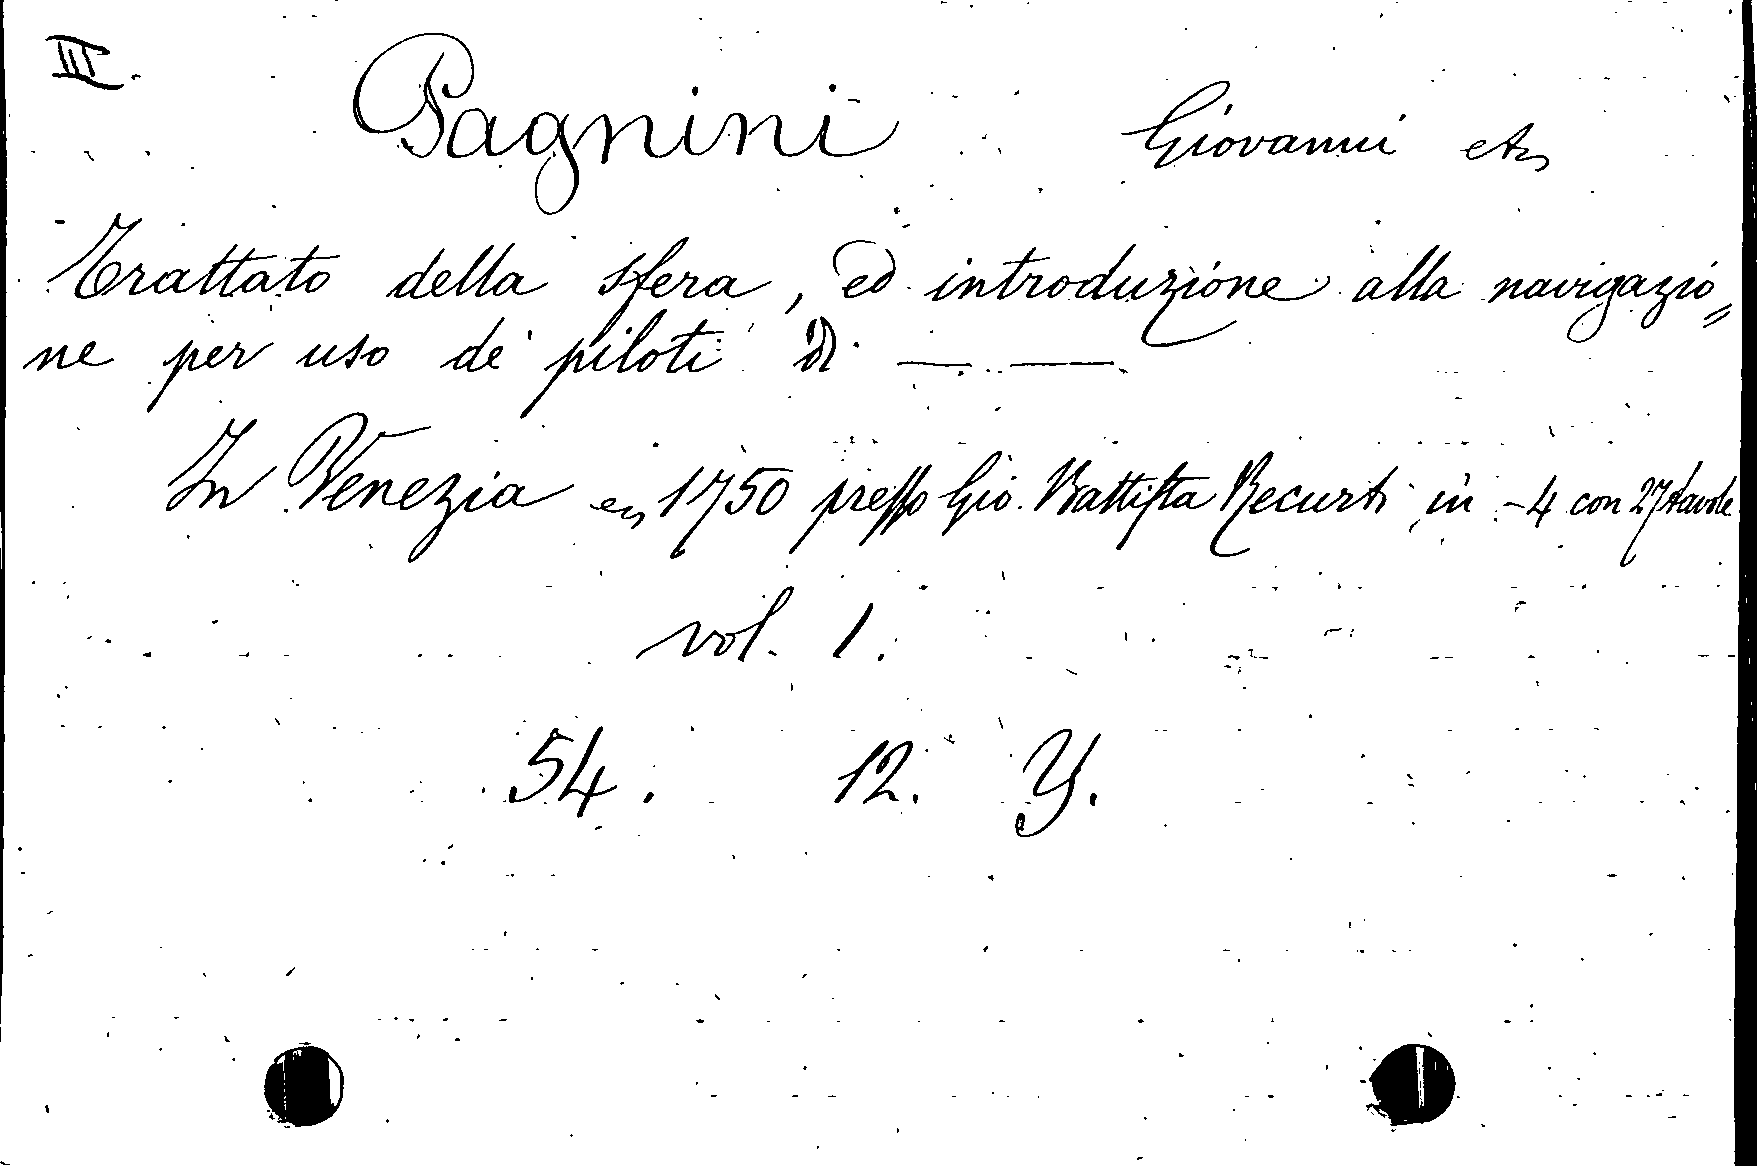 III.
Pagnini Giovanni etc
Trattato della sfera, ed introduzione alla navigazio=
ne per uso de' piloti di — —
In Venezia 1750 presso Gio. Battista Recurti in -4 con 27 tavole
vol. 1.
54. 12. Y.